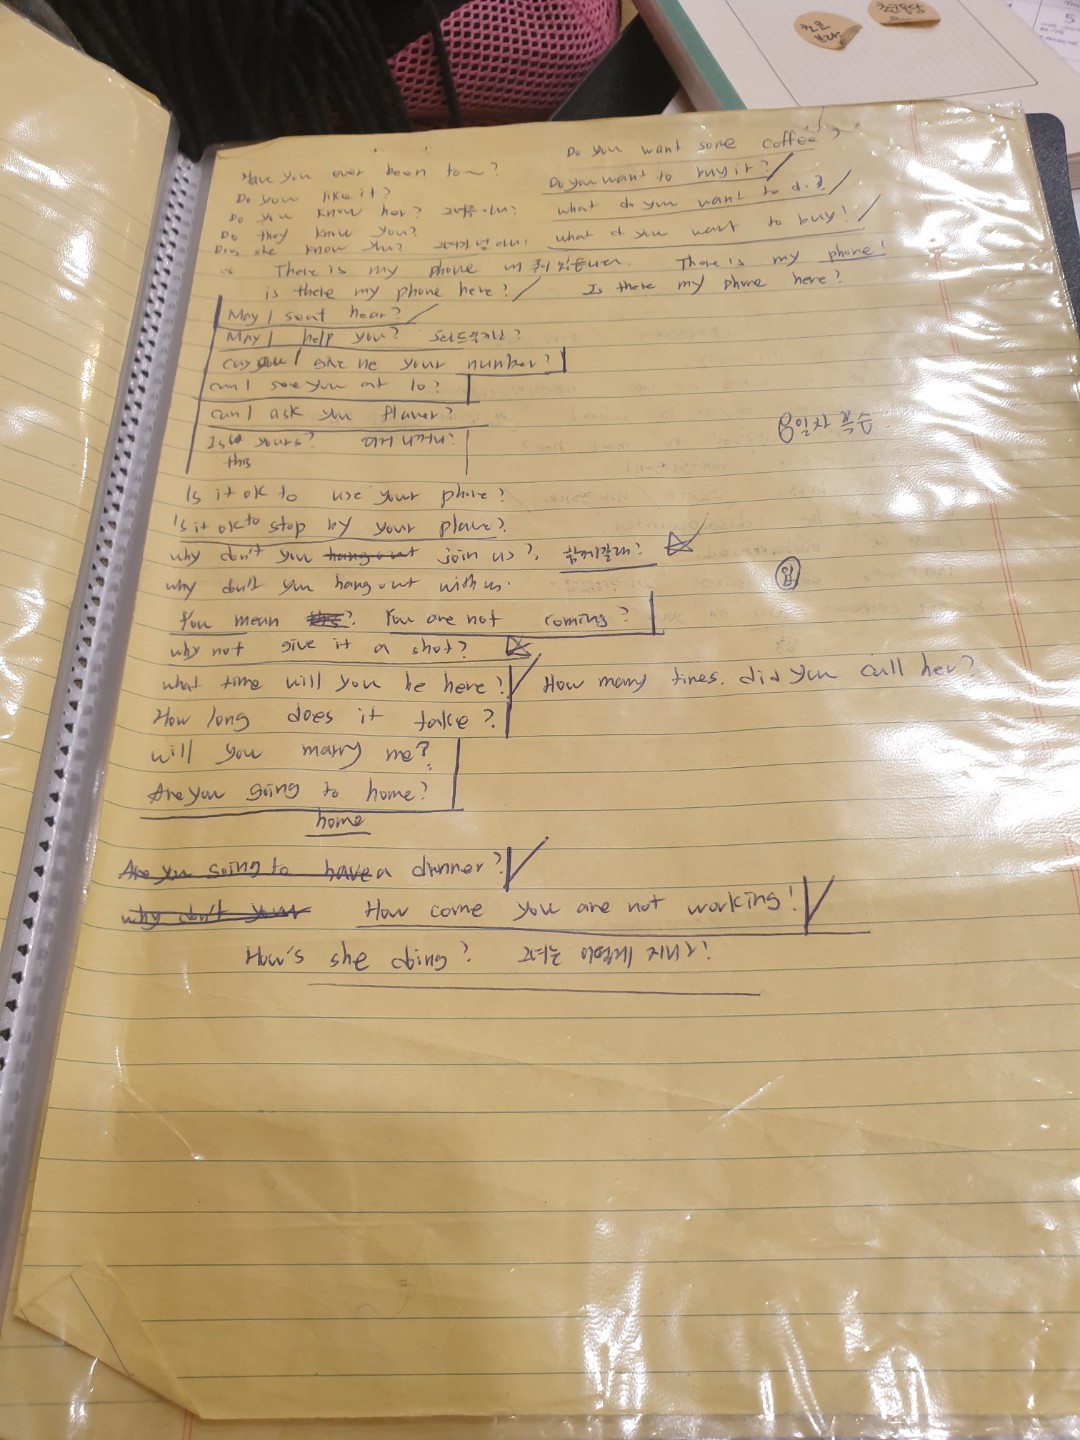 Do you want some coffee?
Have you ever been to ~?
Do you want to buy it?
Do you like it?
what do you want to do?
Do you know her?
Do they know you?
what d you want to buy?
Does she know you?
There is my phone
There is my phone!
is there my phone here?
Is there my phone here?
May I seat hear?
May I help you? 도와드릴까요?
give me your number?
can I see you at 10?
can I ask you flaver?
Is yours?
this
8일차 복습
Is it ok to use your phone?
Is it ok to stop by your place?
why don't you hang out join us?, 함께갈래?
why don't you hang out with us.
You mean ? You are not coming?
why not give it a shot?
what time will you be here? How many times. did you call her?
How long does it take?
will you marry me?
Are you going to home?
home
Are you going to have a dinner?
why don't your How come you are not working!
How's she doing? 그녀는 어떻게 지내?